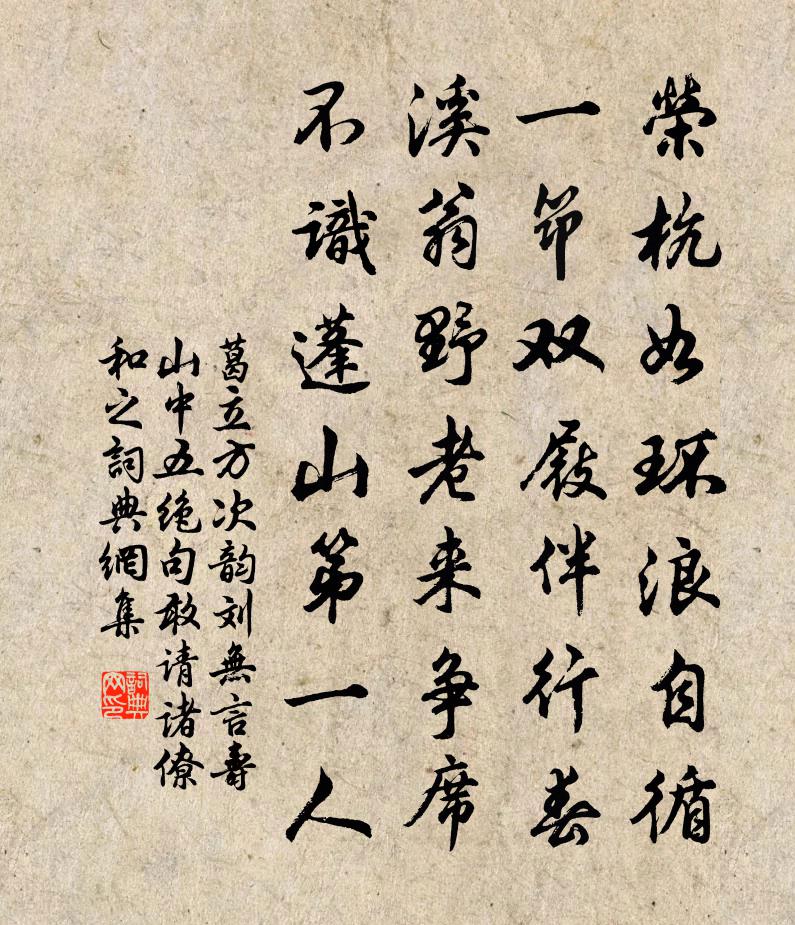 榮杭如环浪自循
一筇双屐伴行春
溪翁野老来争席
不識蓬山第一人
葛立方次韵刘無言壽
山中五绝句敢请诸僚
和之詞典網集
詞典
网印